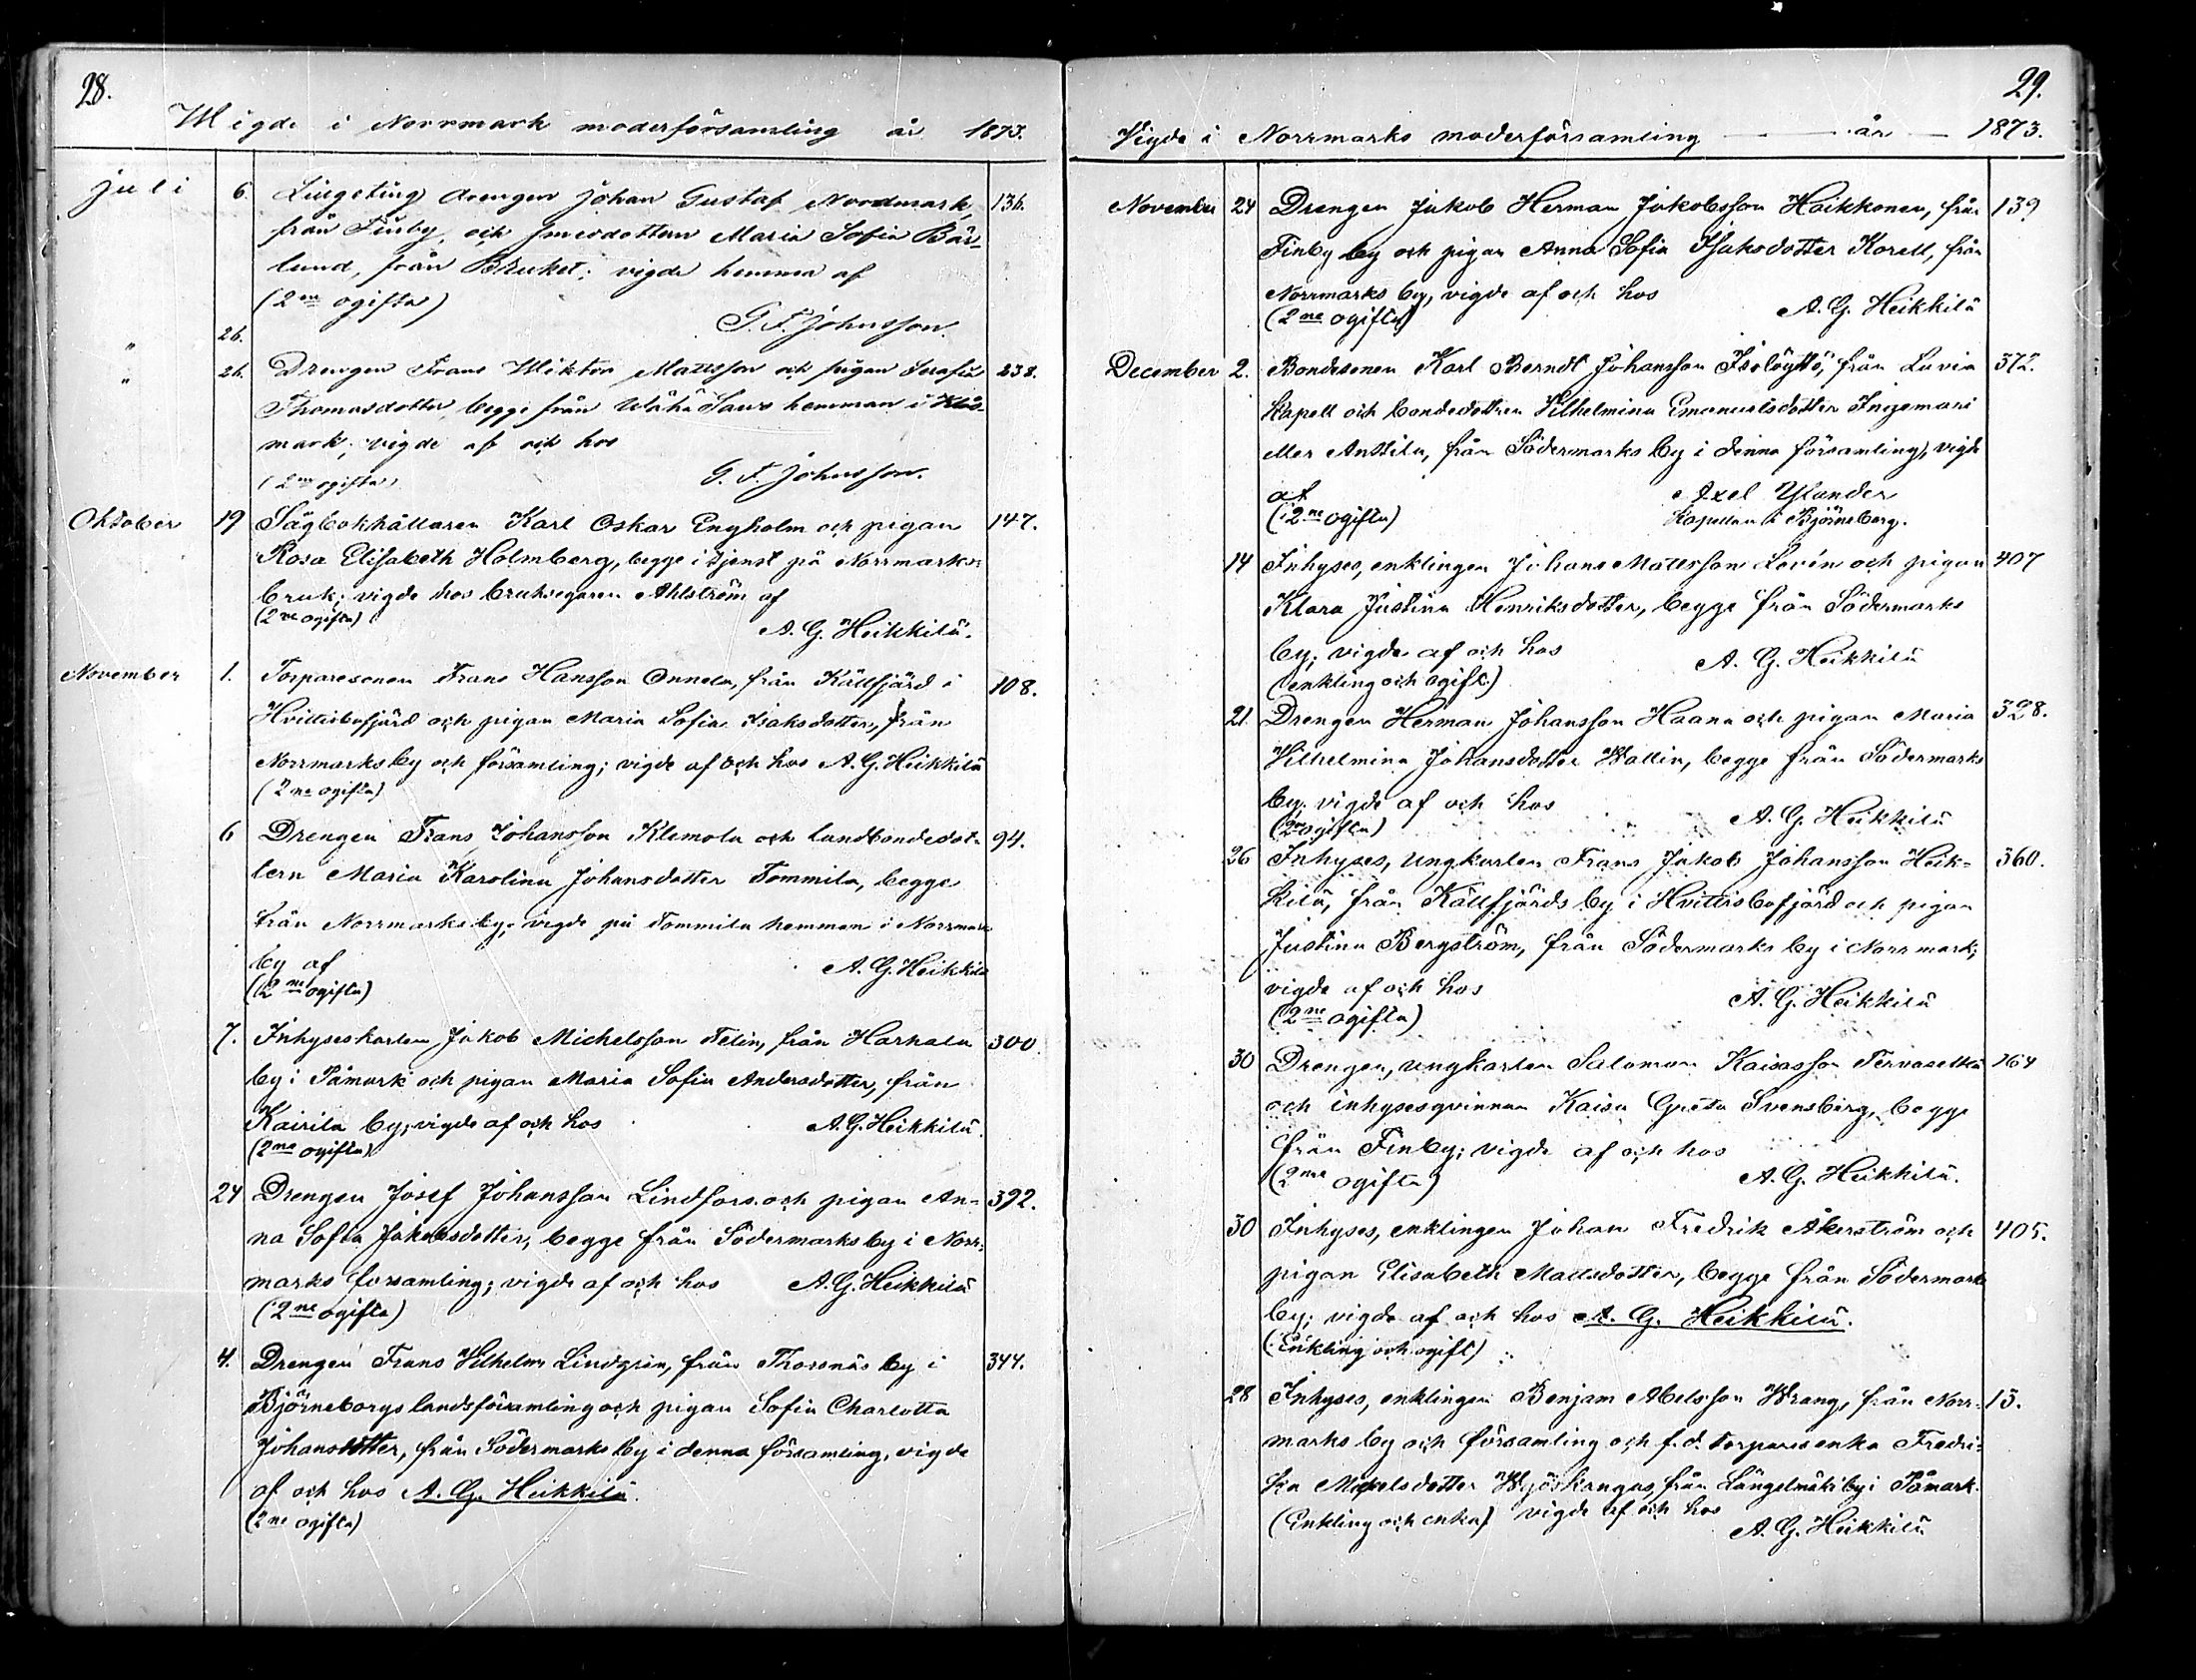 28.
Wigde i Norrmark moderförsamling år 1873.
Juli 6. drengen Johan Gustaf Nordmark, 136.
från Finby, och smedsdottern Maria Sofia Bär-
lund, från Bruket; vigde hemma af
(2ne ogifta)
G. F. Johnsson.
" 26.
" 26. Drengen Frans Wiktor Mattsson och pigan Serafia 238.
Thomasdotter, begge från Wähä Sauro hemman i
mark; vigde af och hos
(2ne ogifta)
G. F. Johnsson.
Oktober 19 Sågbokhållaren Karl Oskar Engholm och pigan 147.
Rosa Elisabeth Holmberg, begge i tjenst på Norrmarks
bruk; vigde hos bruksegaren Ahlström af
(2ne ogifta)
A. G. Heikkilä.
November 1. Torparesonen Frans Hansson Onnela, från Källfjärd i 108.
Hvittisbofjärd och pigan Maria Sofia Isaksdotter, från
Norrmarks by och församling; vigde af och hos A. G. Heikkilä
(2ne ogifta)
6 Drengen Frans Johansson Klemola och landbondedot- 94.
tern Maria Karolina Johansdotter Tommila, begge
från Norrmarks by; vigde på Tommila hemman i Norrmarks
by af A. G. Heikkilä
(2ne ogifta)
7. Inhyseskarlen Jakob Michelsson Felin, från Harhala 300.
by i Påmark och pigan Maria Sofia Andersdotter, från
Kairila by; vigde af och hos A. G. Heikkilä.
(2ne ogifta)
24 Drengen Josef Johansson Lindfors och pigan An- 392.
na Sofia Jakobsdotter, begge från Södermarks by i Norr-
marks forsamling; vigde af och hos A. G. Heikkilä
(2ne ogifta)
4. Drengen Frans Vilhelm Lindgren, från Thorsnäs by i 344.
Björneborgs landsförsamling och pigan Sofia Charlotta
Johansdotter, från Södermarks by i denna församling, vigde
af och hos A. G. Heikkilä.
(2ne ogifta)
29.
Vigde i Norrmarks moderförsamling år 1873.
November 24 Drengen Jakob Herman Jakobsson Heikkonen, från 139
Finby by och pigan Anna Sofia Isaksdotter Korell, från
Norrmarks by, vigde af och hos
(2ne ogifta) A. G. Heikkilä
December 2. Bondesonen Karl Berndt Johansson Isolöyttö, från Lavia 372.
kapell och bondedottren Vilhelmina Emanuelsdotter Ingemari
eller Anttila, från Södermarks by i denna församling, vigde
af Axel Ylander
(2ne ogifta) kapellan i Björneborg.
14 Inhyses, enklingen Johan Mattsson Lovén och pigan 407
Klara Justina Henriksdotter, begge från Södermarks
by; vigde af och hos A. G. Heikkilä
(enkling och ogift.)
21. Drengen Herman Johansson Haana och pigan Maria 328.
Vilhelmina Johansdotter Wallin, begge från Södermarks
by. vigde af och hos
(2ne ogifta) A. G. Heikkilä
26 Inhyses, ungkarlen Frans Jakob Johansson Heik- 360.
kilä, från Källfjärds by i Hvittisbofjärd och pigan
Justina Bergström, från Södermarks by i Norrmark;
vigde af och hos
(2ne ogifta) A. G. Heikkilä
30 Drengen, ungkarlen Salomon Kaisasson Tervaselkä 164
och inhysesqvinnan Kaisa Greta Svensberg, begge
från Finby; vigde af och hos
(2ne ogifta) A. G. Heikkilä.
30 Inhyses, enklingen Johan Fredrik Åkerström och 405.
pigan Elisabeth Mattsdotter, begge från Södermarks
by; vigde af och hos A. G. Heikkilä.
(Enkling och ogift)
28 Inhyses, enklingen Benjam Abelsson Wrang, från Norr- 13.
marks by och församling och f. d. torparesenka Fredri-
ka Mickelsdotter från Längelmäki by i Påmark.
(Enkling och enka) vigde af och hos
A. G. Heikkilä